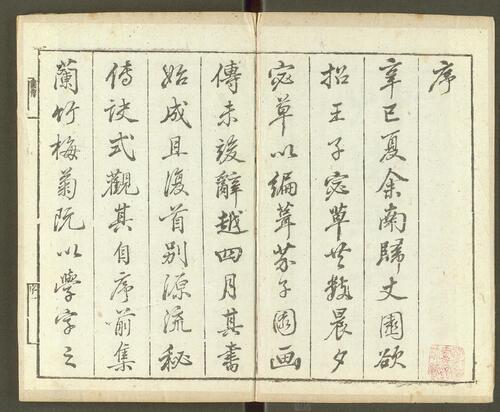 序
辛巳夏余南歸丈園欲
招王子宓草共數晨夕
宓草以編葺芥子園画
傳未竣辭越四月其書
始成且復首别源流秘
傳訣式觀其自序前集
蘭竹梅菊既以學字之